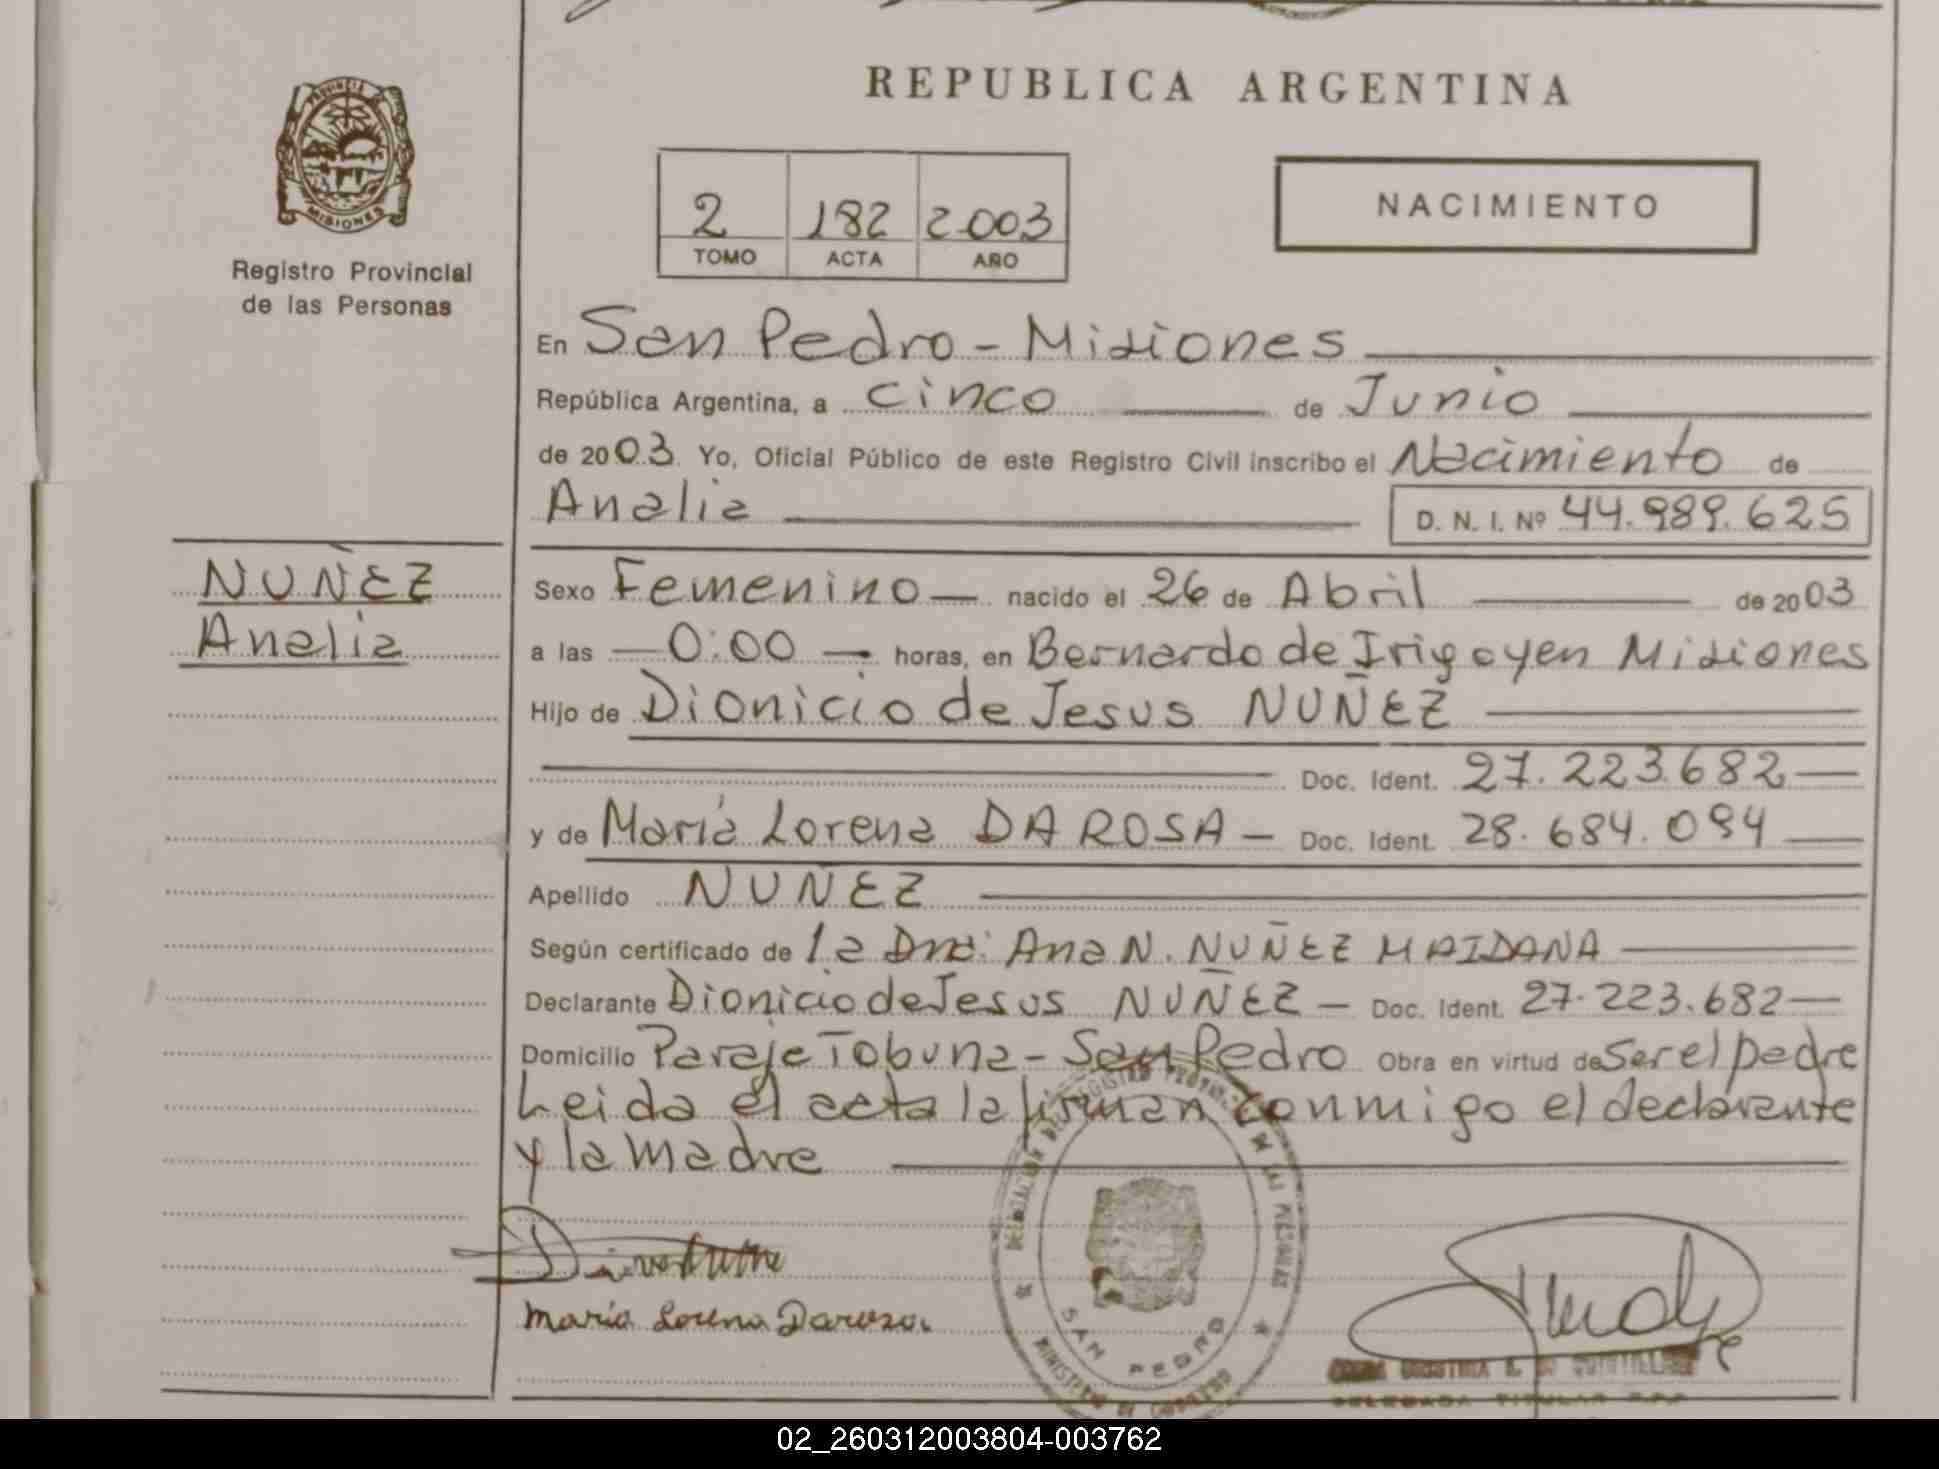 REPUBLICA ARGENTINA
PROVINCIA DE
MISIONES
Registro Provincial
de las Personas
2 182 2003
TOMO ACTA AÑO
NACIMIENTO
En San Pedro - Misiones
República Argentina, a cinco de Junio
de 2003 Yo, Oficial Público de este Registro Civil inscribo el Nacimiento de
Analia D. N. I. Nº 44.989.625
NUÑEZ
Analia
Sexo Femenino nacido el 26 de Abril de 2003
a las 0:00 horas, en Bernardo de Irigoyen Misiones
Hijo de Dionicio de Jesus NUÑEZ
Doc. Ident. 27.223.682
y de Maria Lorena DA ROSA - Doc. Ident. 28.684.094
Apellido NUÑEZ
Según certificado de la Dra: Ana N. NUÑEZ MAIDANA
Declarante Dionicio de Jesus NUÑEZ - Doc. Ident. 27.223.682
Domicilio Paraje Tobuna - San Pedro Obra en virtud de Ser el padre
Leida el acta la firman conmigo el declarante
y la madre
Maria Lorena Darosa
DELEGACION DEL REGISTRO PROVINCIAL DE LAS PERSONAS
SAN PEDRO
MINISTERIO DE GOBIERNO
DELEGADA TITULAR
02_260312003804-003762